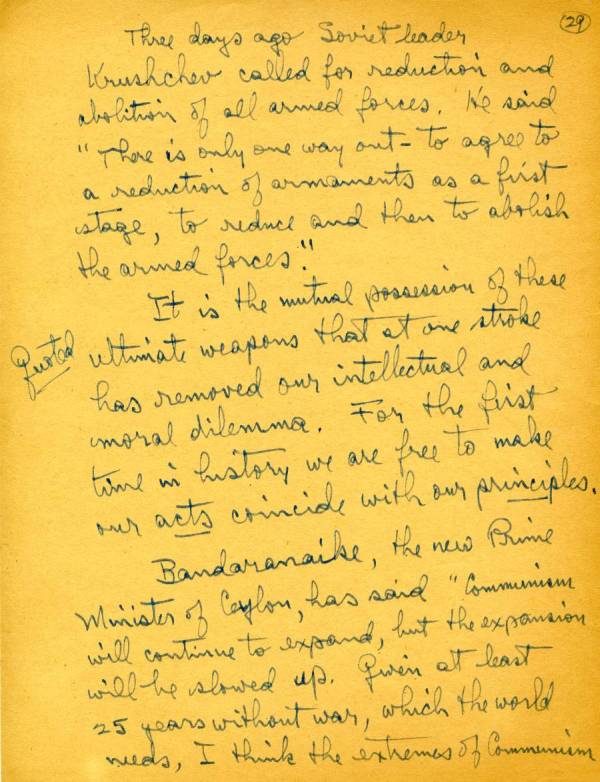 29
Three days ago Soviet leader
Krushchev called for reduction and
abolition of all armed forces. He said
"There is only one way out – to agree to
a reduction of armaments as a first
stage, to reduce and then to abolish
the armed forces".
It is the mutual possession of these
Quoted
ultimate weapons that at one stroke
has removed our intellectual and
moral dilemma. For the first
time in history we are free to make
our acts coincide with our principles.
Bandaranaike, the new Prime
Minister of Ceylon, has said "Communism
will continue to expand, but the expansion
will be slowed up. Given at least
25 years without war, which the world
needs, I think the extremes of Communism